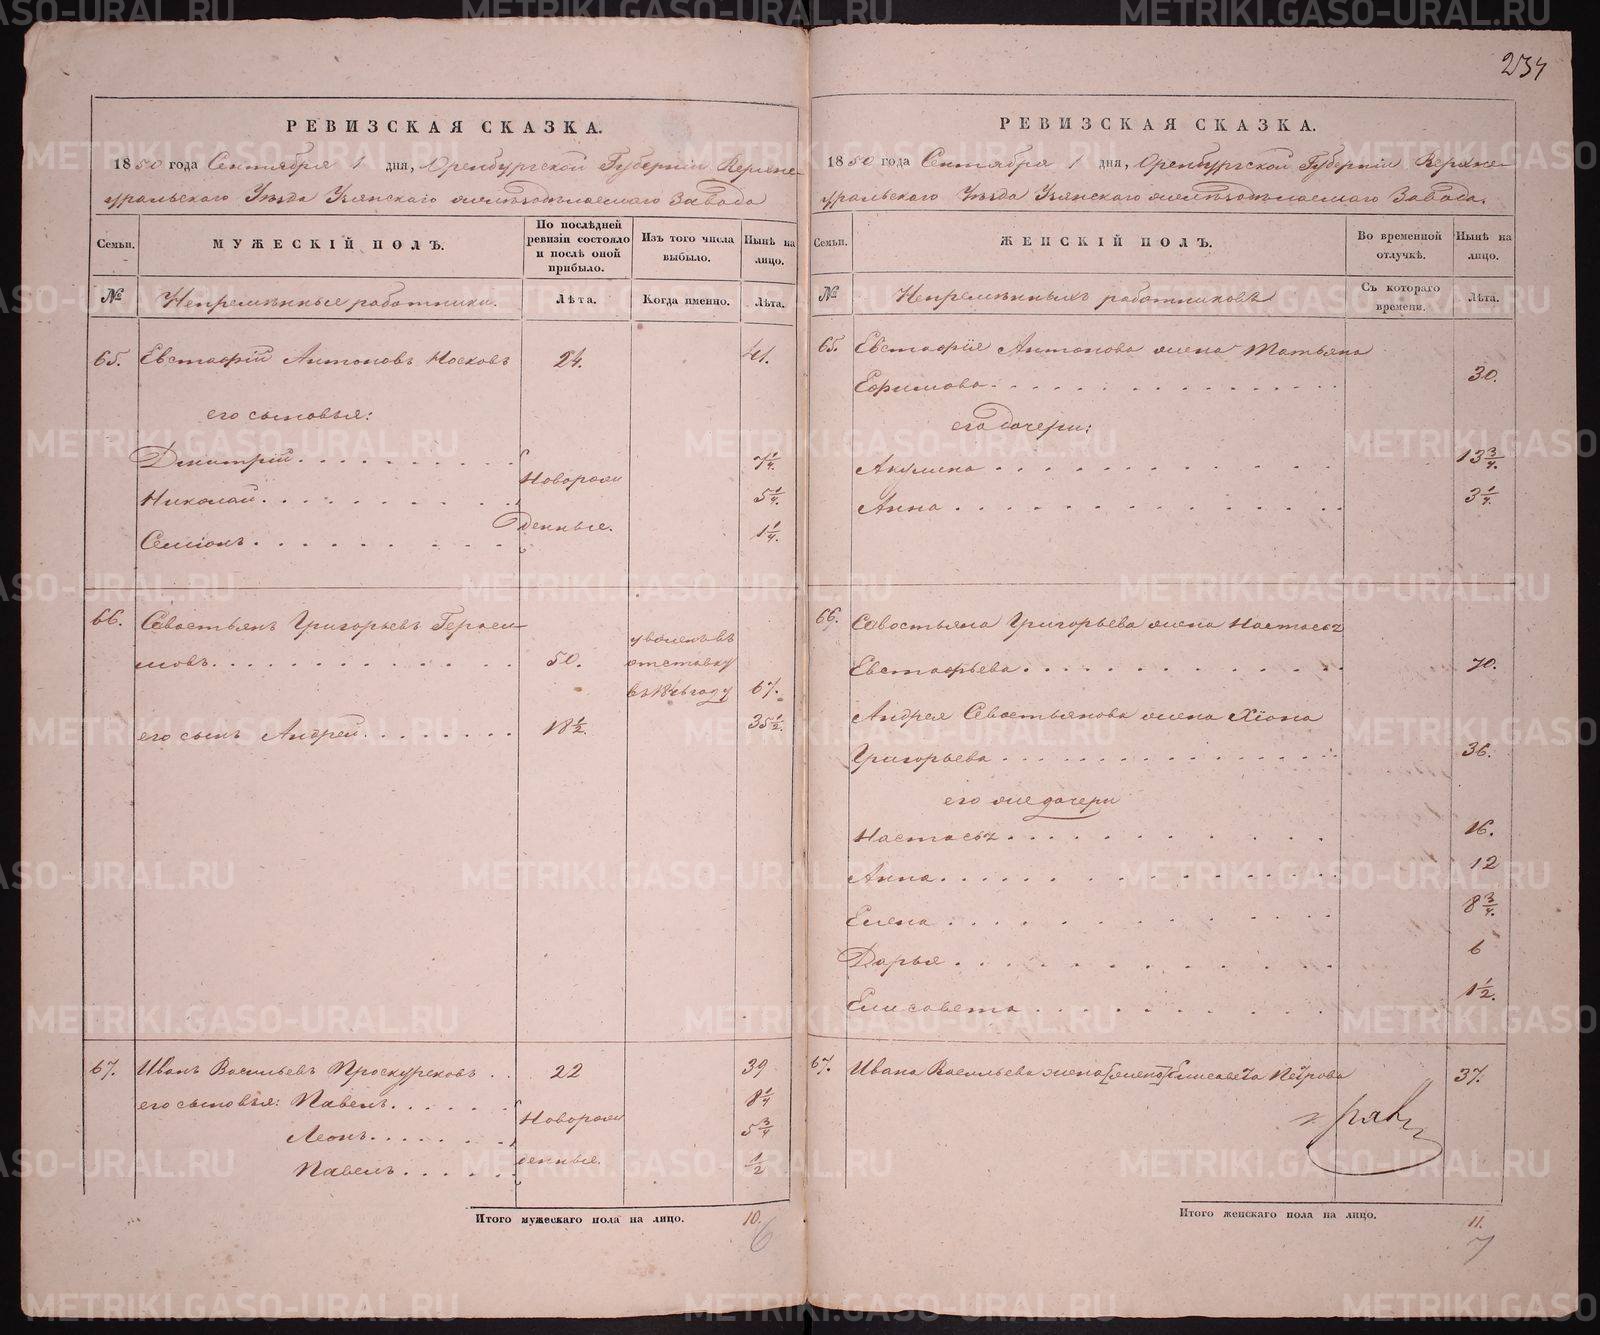 234
РЕВИЗСКАЯ СКАЗКА.
1850 года Сентября 1 дня, Оренбургской Губерніи Верхне-
уральскаго Уѣзда Узянскаго желѣзодѣлаемаго Завода
Семьи.
МУЖЕСКІЙ ПОЛЪ.
По послѣдней
ревизіи состояло
и послѣ оной
прибыло.
Изъ того числа
выбыло.
Нынѣ на
лицо.
№
Непремѣнные работники.
Лѣта.
Когда именно.
Лѣта.
65. Евстафій Антоновъ Носковъ 24. 41.
его сыновья:
Дмитрій 7 1/4.
Новорож
Николай 5 1/4.
денные.
Семіонъ 1 1/4.
66. Севостьянъ Григорьевъ Гераси
мовъ 50. уволенъ въ
отставку
въ 1846 году 67.
его сынъ Андрей 18 1/2. 35 1/2.
67. Иванъ Васильевъ Проскурековъ 22 39
его сыновья: Павелъ 8 1/4
Новорож
Леонъ 5 3/4
денные.
Павелъ 1/2
Итого мужескаго пола на лицо. 10.
6
РЕВИЗСКАЯ СКАЗКА.
1850 года Сентября 1 дня, Оренбургской Губерніи Верхне-
уральскаго Уѣзда Узянскаго желѣзодѣлаемаго Завода.
Семьи.
ЖЕНСКІЙ ПОЛЪ.
Во временной
отлучкѣ.
Нынѣ на
лицо.
№
Непремѣнныхъ работниковъ
Съ котораго
времени.
Лѣта.
65. Евстафія Антонова жена Татьяна
Ефимова 30.
его дочери:
Акулина 13 3/4.
Анна 3 1/4.
66. Севостьяна Григорьева жена Настасья
Евстафьева 70.
Андрея Севостьянова жена Хіона
Григорьева 36.
его же дочери
Настасья 16.
Анна 12
Елена 8 3/4.
Дарья 6
Елисавета 1 1/2.
67. Ивана Васильева жена Елисавета Петрова 37.
Итого женскаго пола на лицо. 11.
7
METRIKI.GASO-URAL.RU